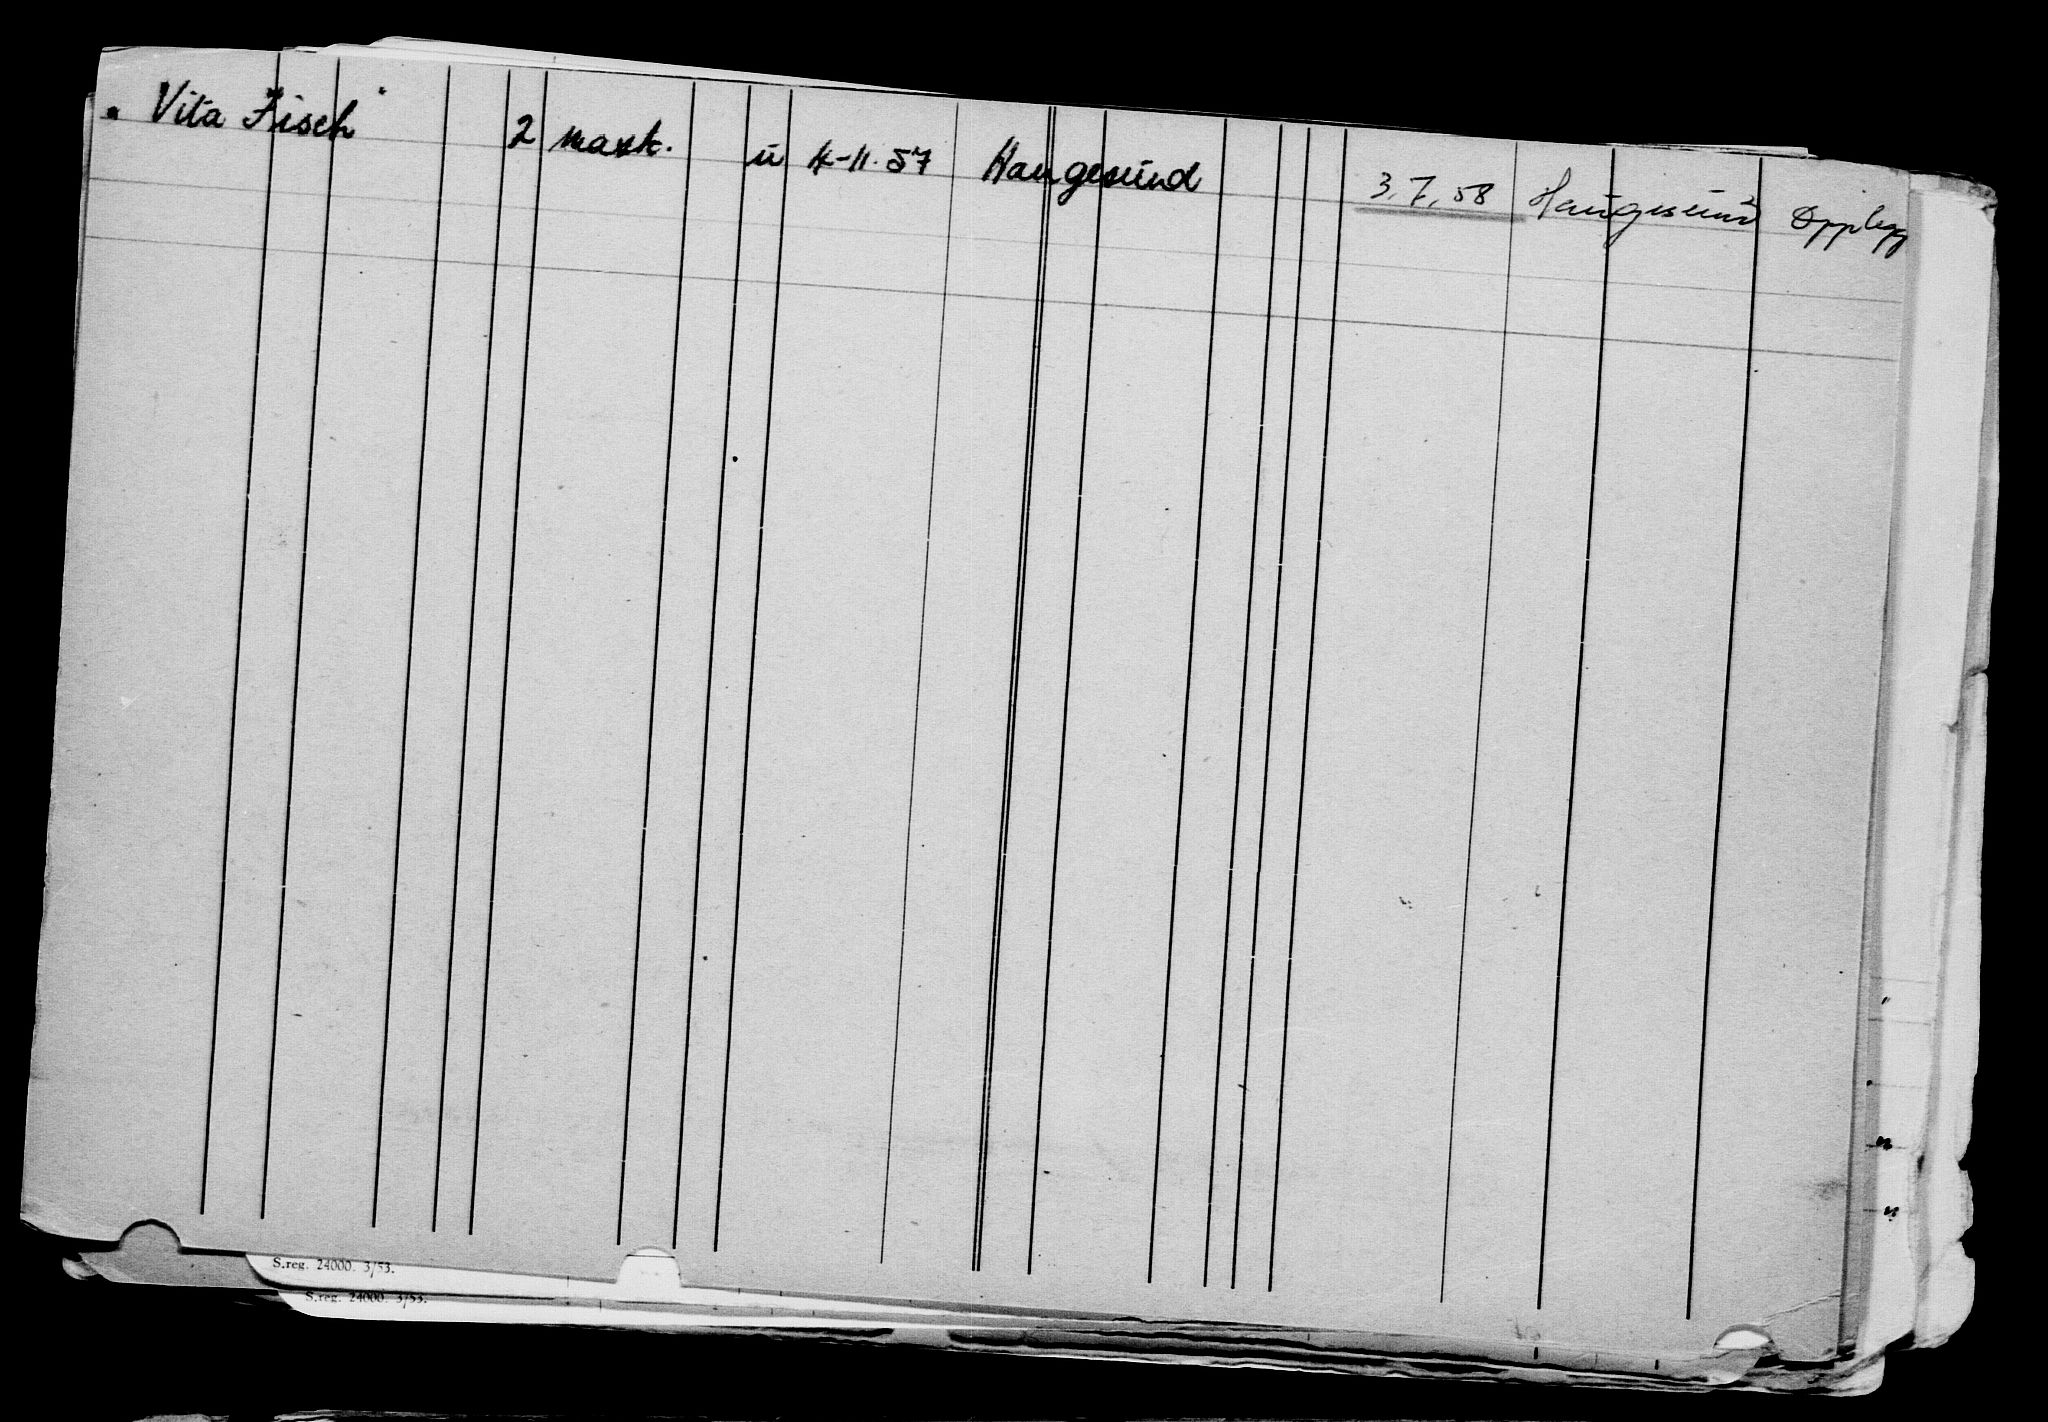 "Vita Fisch" 2 mask. u 4-11.57 Haugesund 3.7.58 Haugesund Opplegg
S.reg. 24000. 3/53.
S.reg. 24000. 3/53.